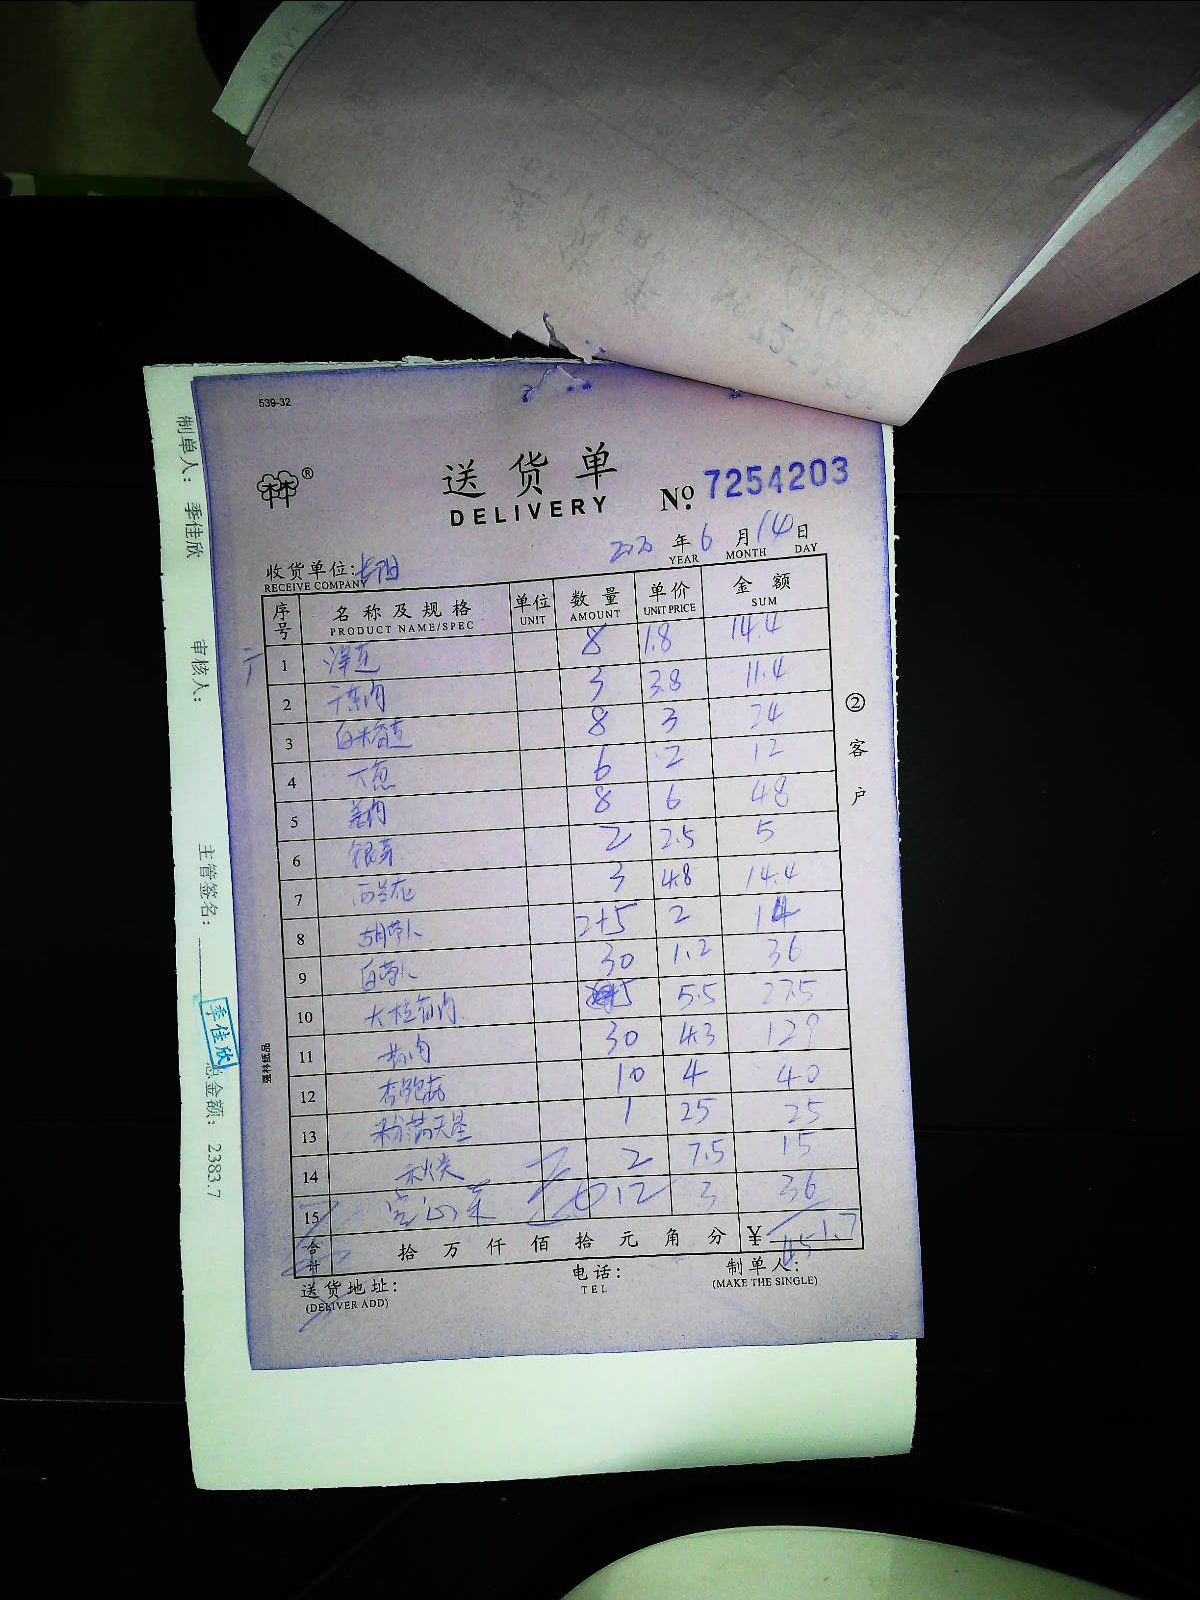 539-32
送货单
DELIVERY
No. 7254203
2020 年 6 月 14 日
YEAR MONTH DAY
收货单位: 长阳
RECEIVE COMPANY
序号 名称及规格 单位 数量 单价 金额
PRODUCT NAME/SPEC UNIT AMOUNT UNIT PRICE SUM
1 洋芝 8 1.8 14.4
2 3 3.8 11.4
3 8 3 24
4 大葱 6 2 12
5 8 6 48
6 银芽 2 2.5 5
7 西兰花 3 4.8 14.4
8 胡萝卜 2+5 2 14
9 白萝卜 30 1.2 36
10 5 5.5 27.5
11 30 4.3 129
12 杏鲍菇 10 4 40
13 满天星 1 25 25
14 秋葵 2 7.5 15
15 12 3 36
合计 拾 万 仟 佰 拾 元 角 分 ¥ 451.7
送货地址: 电话: 制单人:
(DELIVER ADD) TEL (MAKE THE SINGLE)
②客户
强林纸品
制单人: 季佳欣
审核人:
主管签名:
季佳欣
总金额: 2383.7